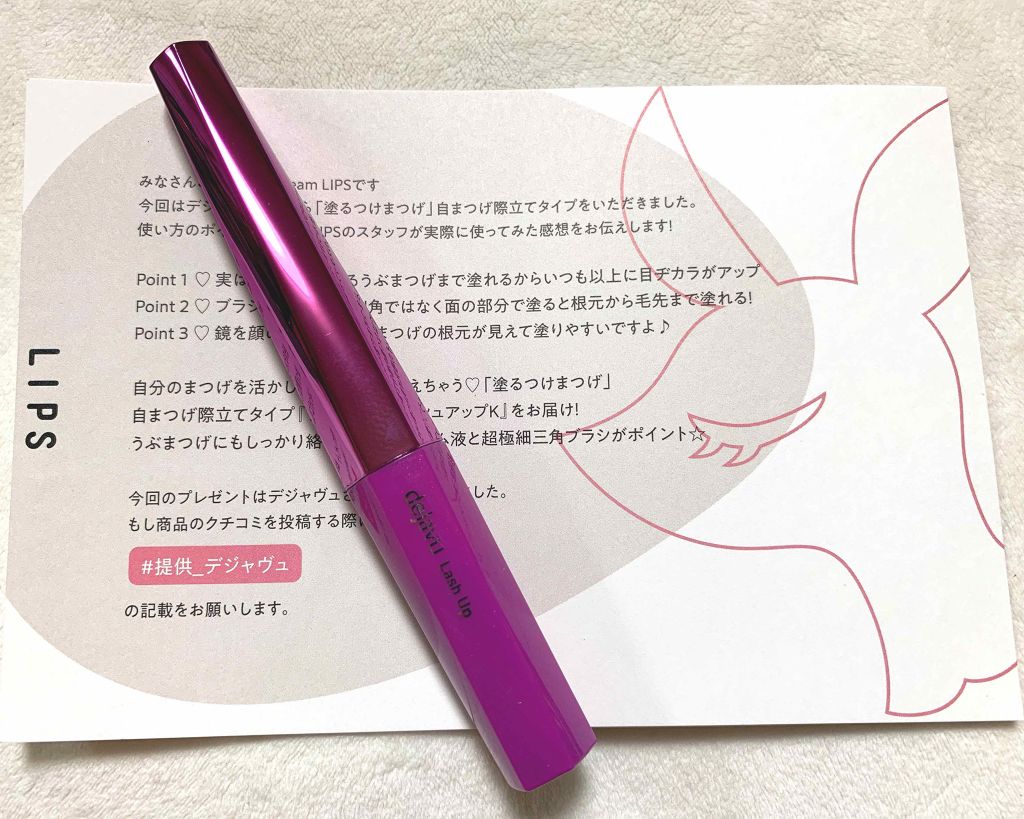 みなさん、 eam LIPSです
今回はデジ ら「塗るつけまつげ」自まつげ際立てタイプをいただきました。
使い方のポイ IPSのスタッフが実際に使ってみた感想をお伝えします!
Point 1 ♡ 実は ろうぶまつげまで塗れるからいつも以上に目ヂカラがアップ
Point 2 ♡ ブラシ 角ではなく面の部分で塗ると根元から毛先まで塗れる!
Point 3 ♡ 鏡を顔の まつげの根元が見えて塗りやすいですよ♪
自分のまつげを活かし えちゃう♡「塗るつけまつげ」
自まつげ際立てタイプ『 ュアップK』をお届け!
うぶまつげにもしっかり絡 ム液と超極細三角ブラシがポイント☆
今回のプレゼントはデジャヴュさ した。
もし商品のクチコミを投稿する際に
#提供_デジャヴュ
の記載をお願いします。
LIPS
dejavu Lash Up